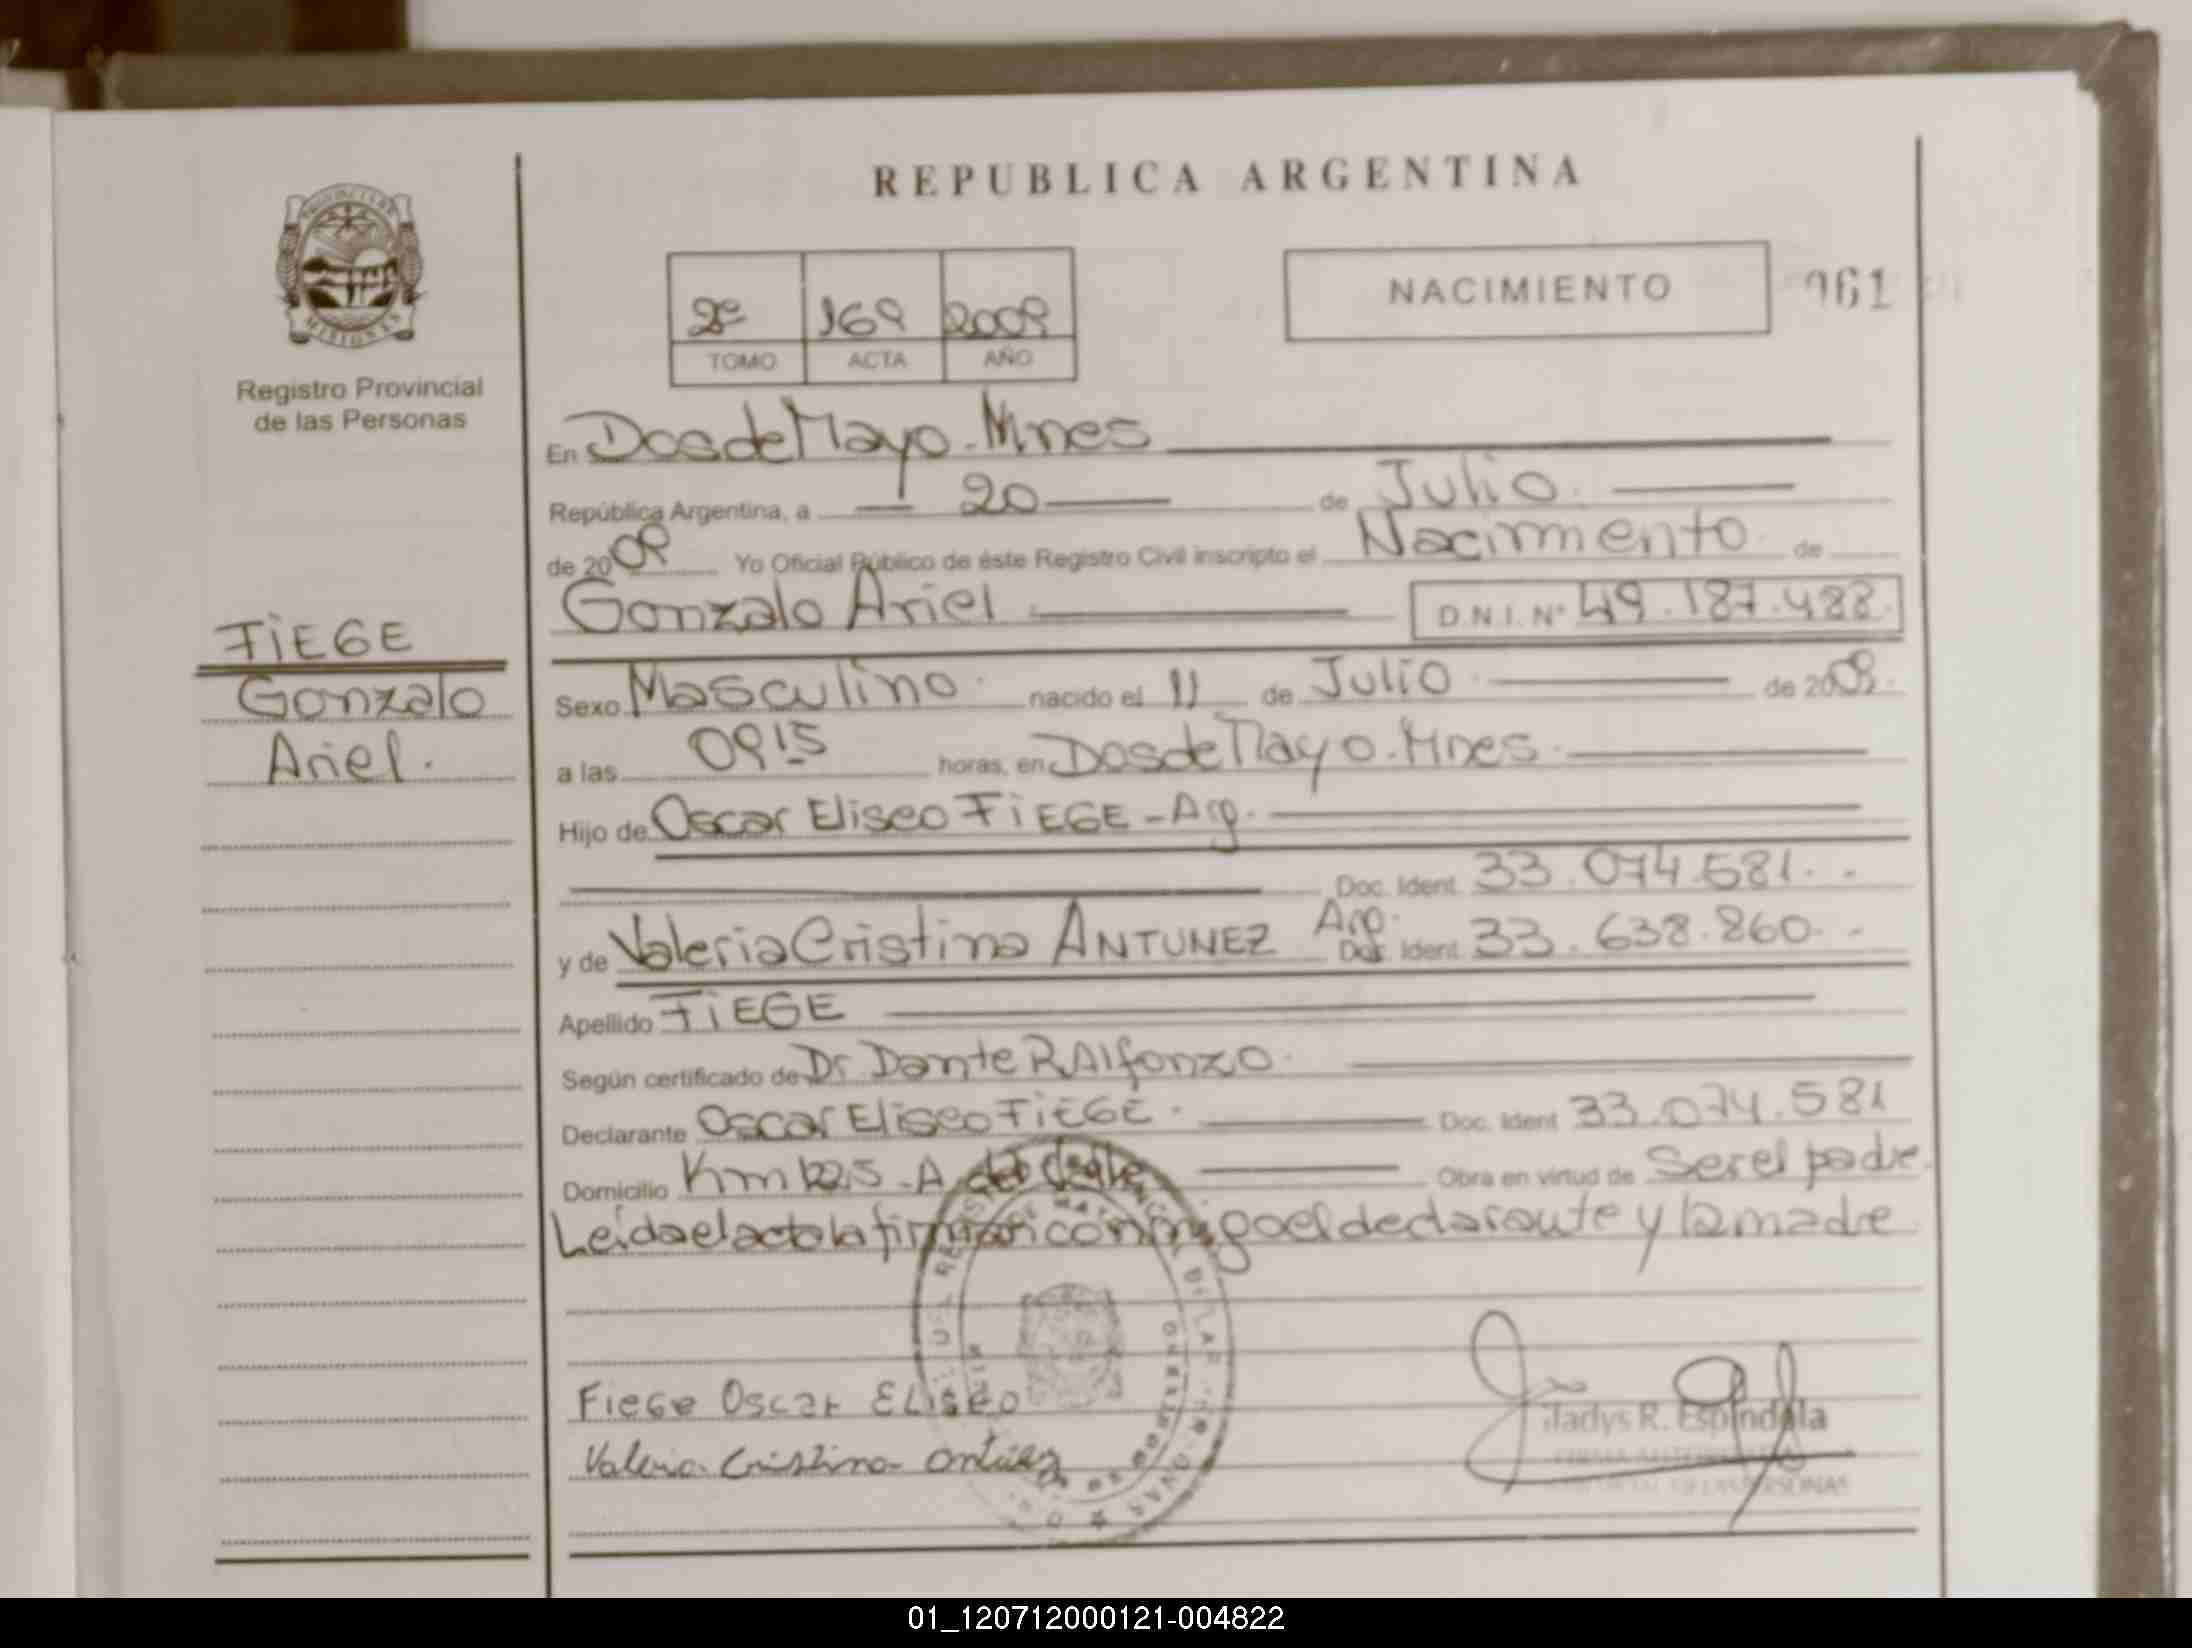 REPUBLICA ARGENTINA
PROVINCIA DE MISIONES
Registro Provincial
de las Personas
2º 169 2009
TOMO ACTA AÑO
NACIMIENTO
061
En Dos de Mayo. Mnes
República Argentina, a 20 de Julio.
de 2009 Yo Oficial Público de éste Registro Civil inscripto el Nacimiento de
Gonzalo Ariel D.N.I. Nº 49.187.488.
FiEGE
Gonzalo
Ariel.
Sexo Masculino. nacido el 11 de Julio. de 2009.
a las 09 15 horas, en Dos de Mayo. Mnes.
Hijo de Oscar Eliseo FiEGE - Arg.
Doc. Ident. 33.074.581.
y de Valeria Cristina ANTUNEZ Arg. Doc. Ident. 33.638.860.
Apellido FiEGE
Según certificado de Dr. Dante R Alfonzo.
Declarante Oscar Eliseo FiEGE. Doc. Ident 33.074.581
Domicilio Km 1225 - A Obra en virtud de Ser el padre.
Leída el acta la firman conmigo el declarante y la madre
Fiege Oscar ELiseo
Valeria Cristina Antúnez
Gladys R. Espíndola
01_120712000121-004822